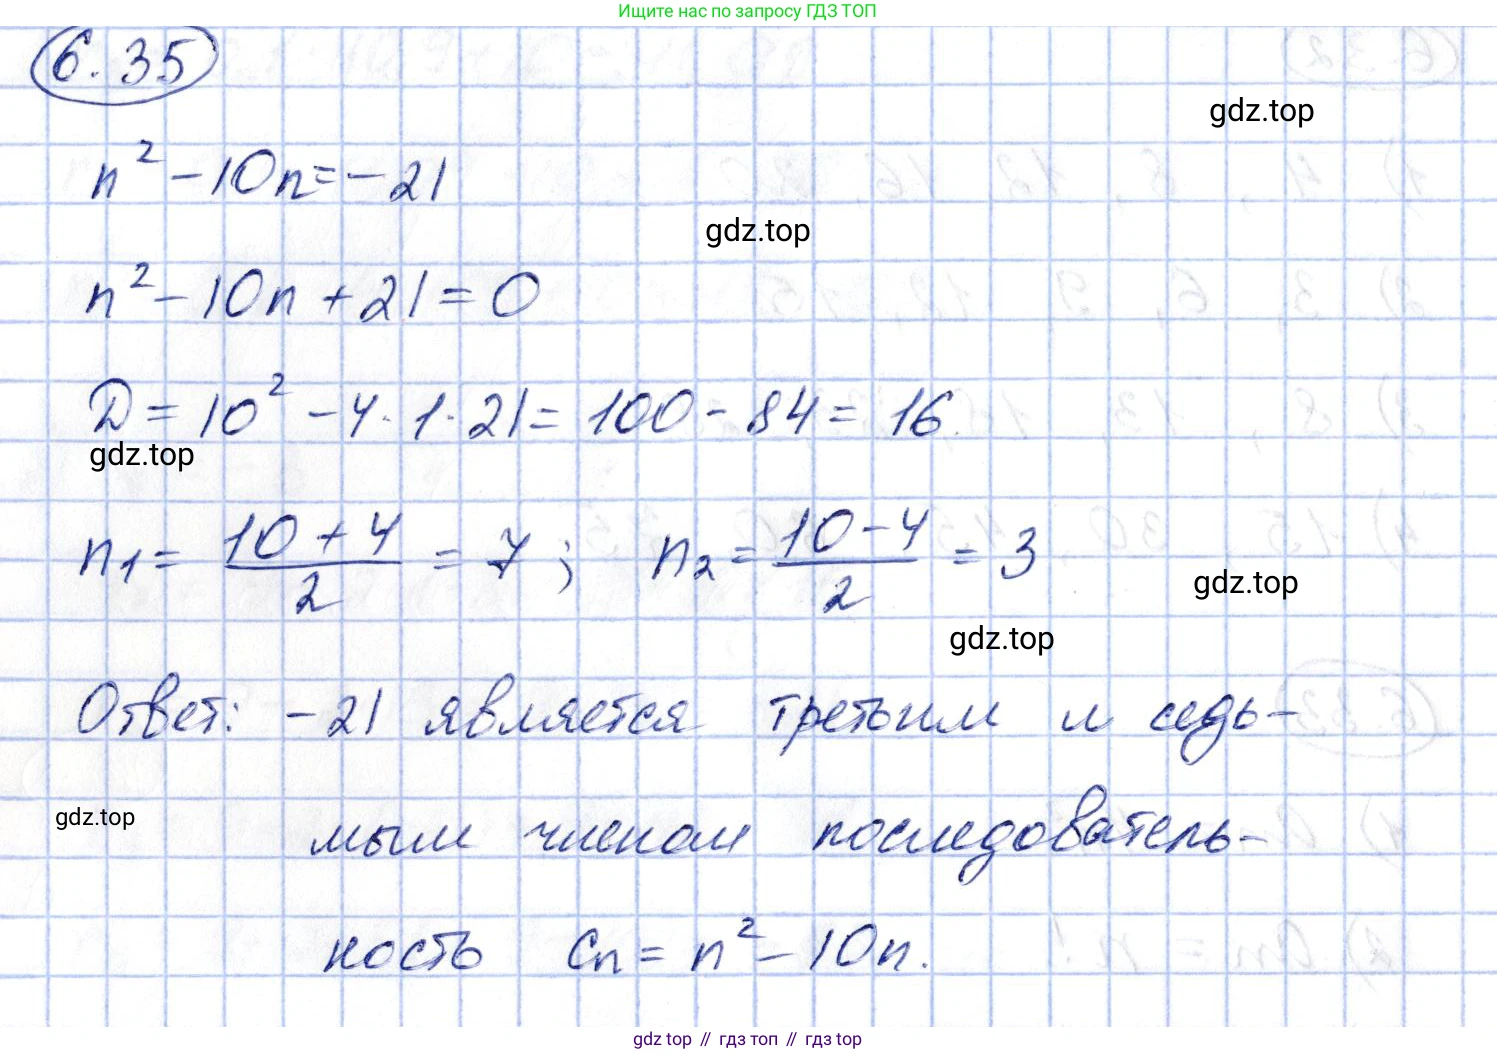 Ищите нас по запросу ГДЗ ТОП
6.35
gdz.top
n² - 10n = -21
gdz.top
n² - 10n + 21 = 0
D = 10² - 4 · 1 · 21 = 100 - 84 = 16.
gdz.top
n₁ = (10 + 4)/2 = 7 ; n₂ = (10 - 4)/2 = 3
gdz.top
gdz.top
Ответ: -21 является третьим и седь-
gdz.top
мым членом последователь-
ность cₙ = n² - 10n.
gdz top // гдз топ // гдз top